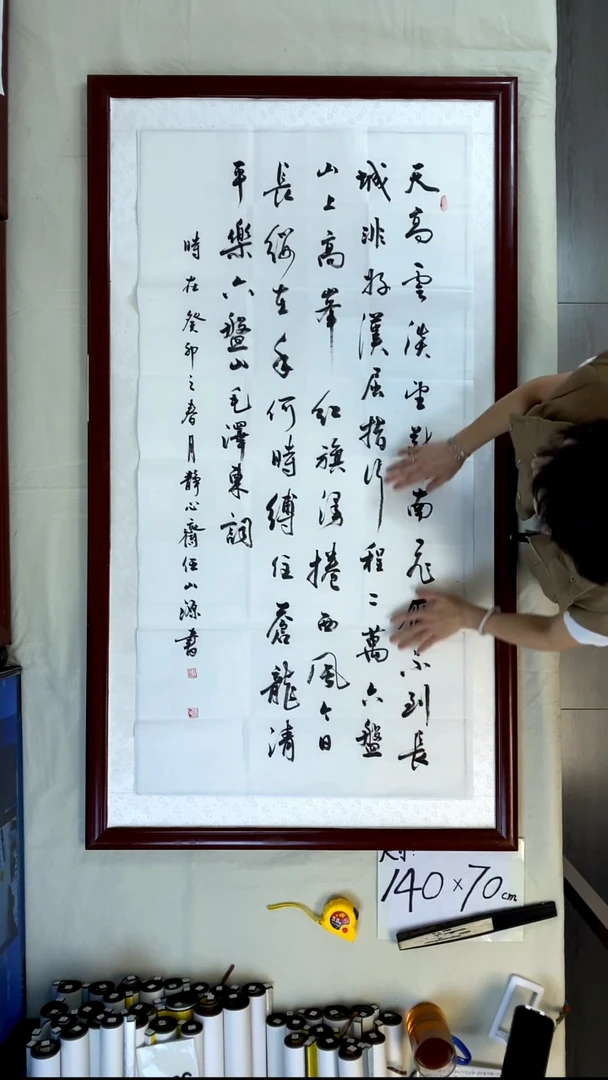 天高雲淡望斷南飛雁不到長
城非好漢屈指行程二萬六盤
山上高峯紅旗漫捲西風今日
長纓在手何時縛住蒼龍清
平樂六盤山毛澤東詞
時在癸卯之春月靜心齋任山源書
尺寸:
140×70cm